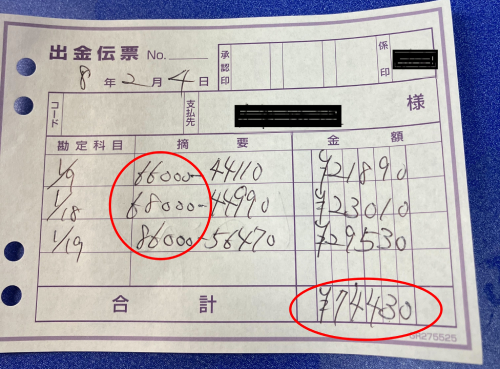 出金伝票 No. 承認印 係印
8年2月4日
コード 支払先 様
勘定科目 摘要 金額
1/9 66000-44110 ¥21890
1/18 68000-44990 ¥23010
1/19 86000-56470 ¥29530
合計 ¥74430
GR275525